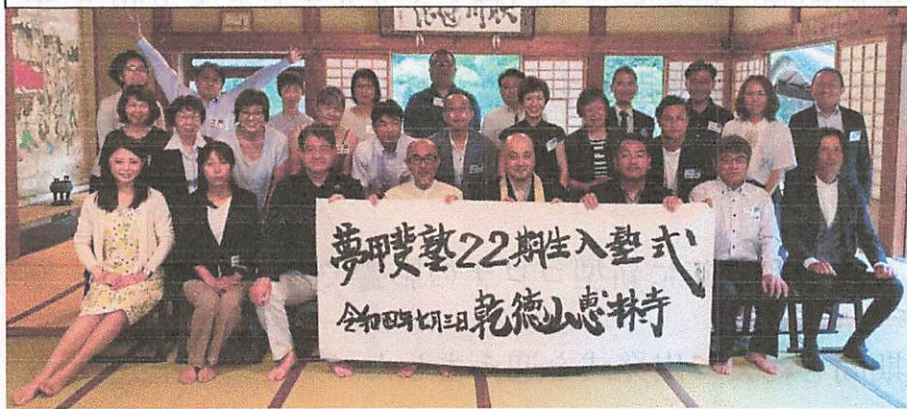 夢甲斐塾22期生入塾式
令和四年七月三日乾徳山恵林寺